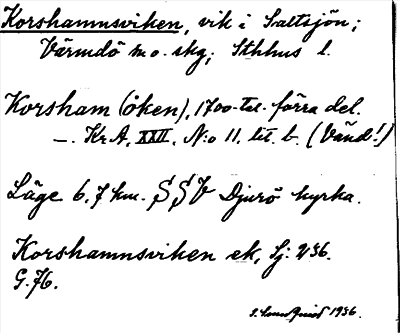 Korshamnsviken, vik i Saltsjön;
Värmdö m o. skg; Sthlms l.
Korsham (öken), 1700-tal. förra del.
—. Kr. A, XXII, N:o 11, lit. b. (Vänd!)
Läge 6,7 km. SSV Djurö kyrka.
Korshamnsviken ek, Sj: 236.
G. 76.
1936.